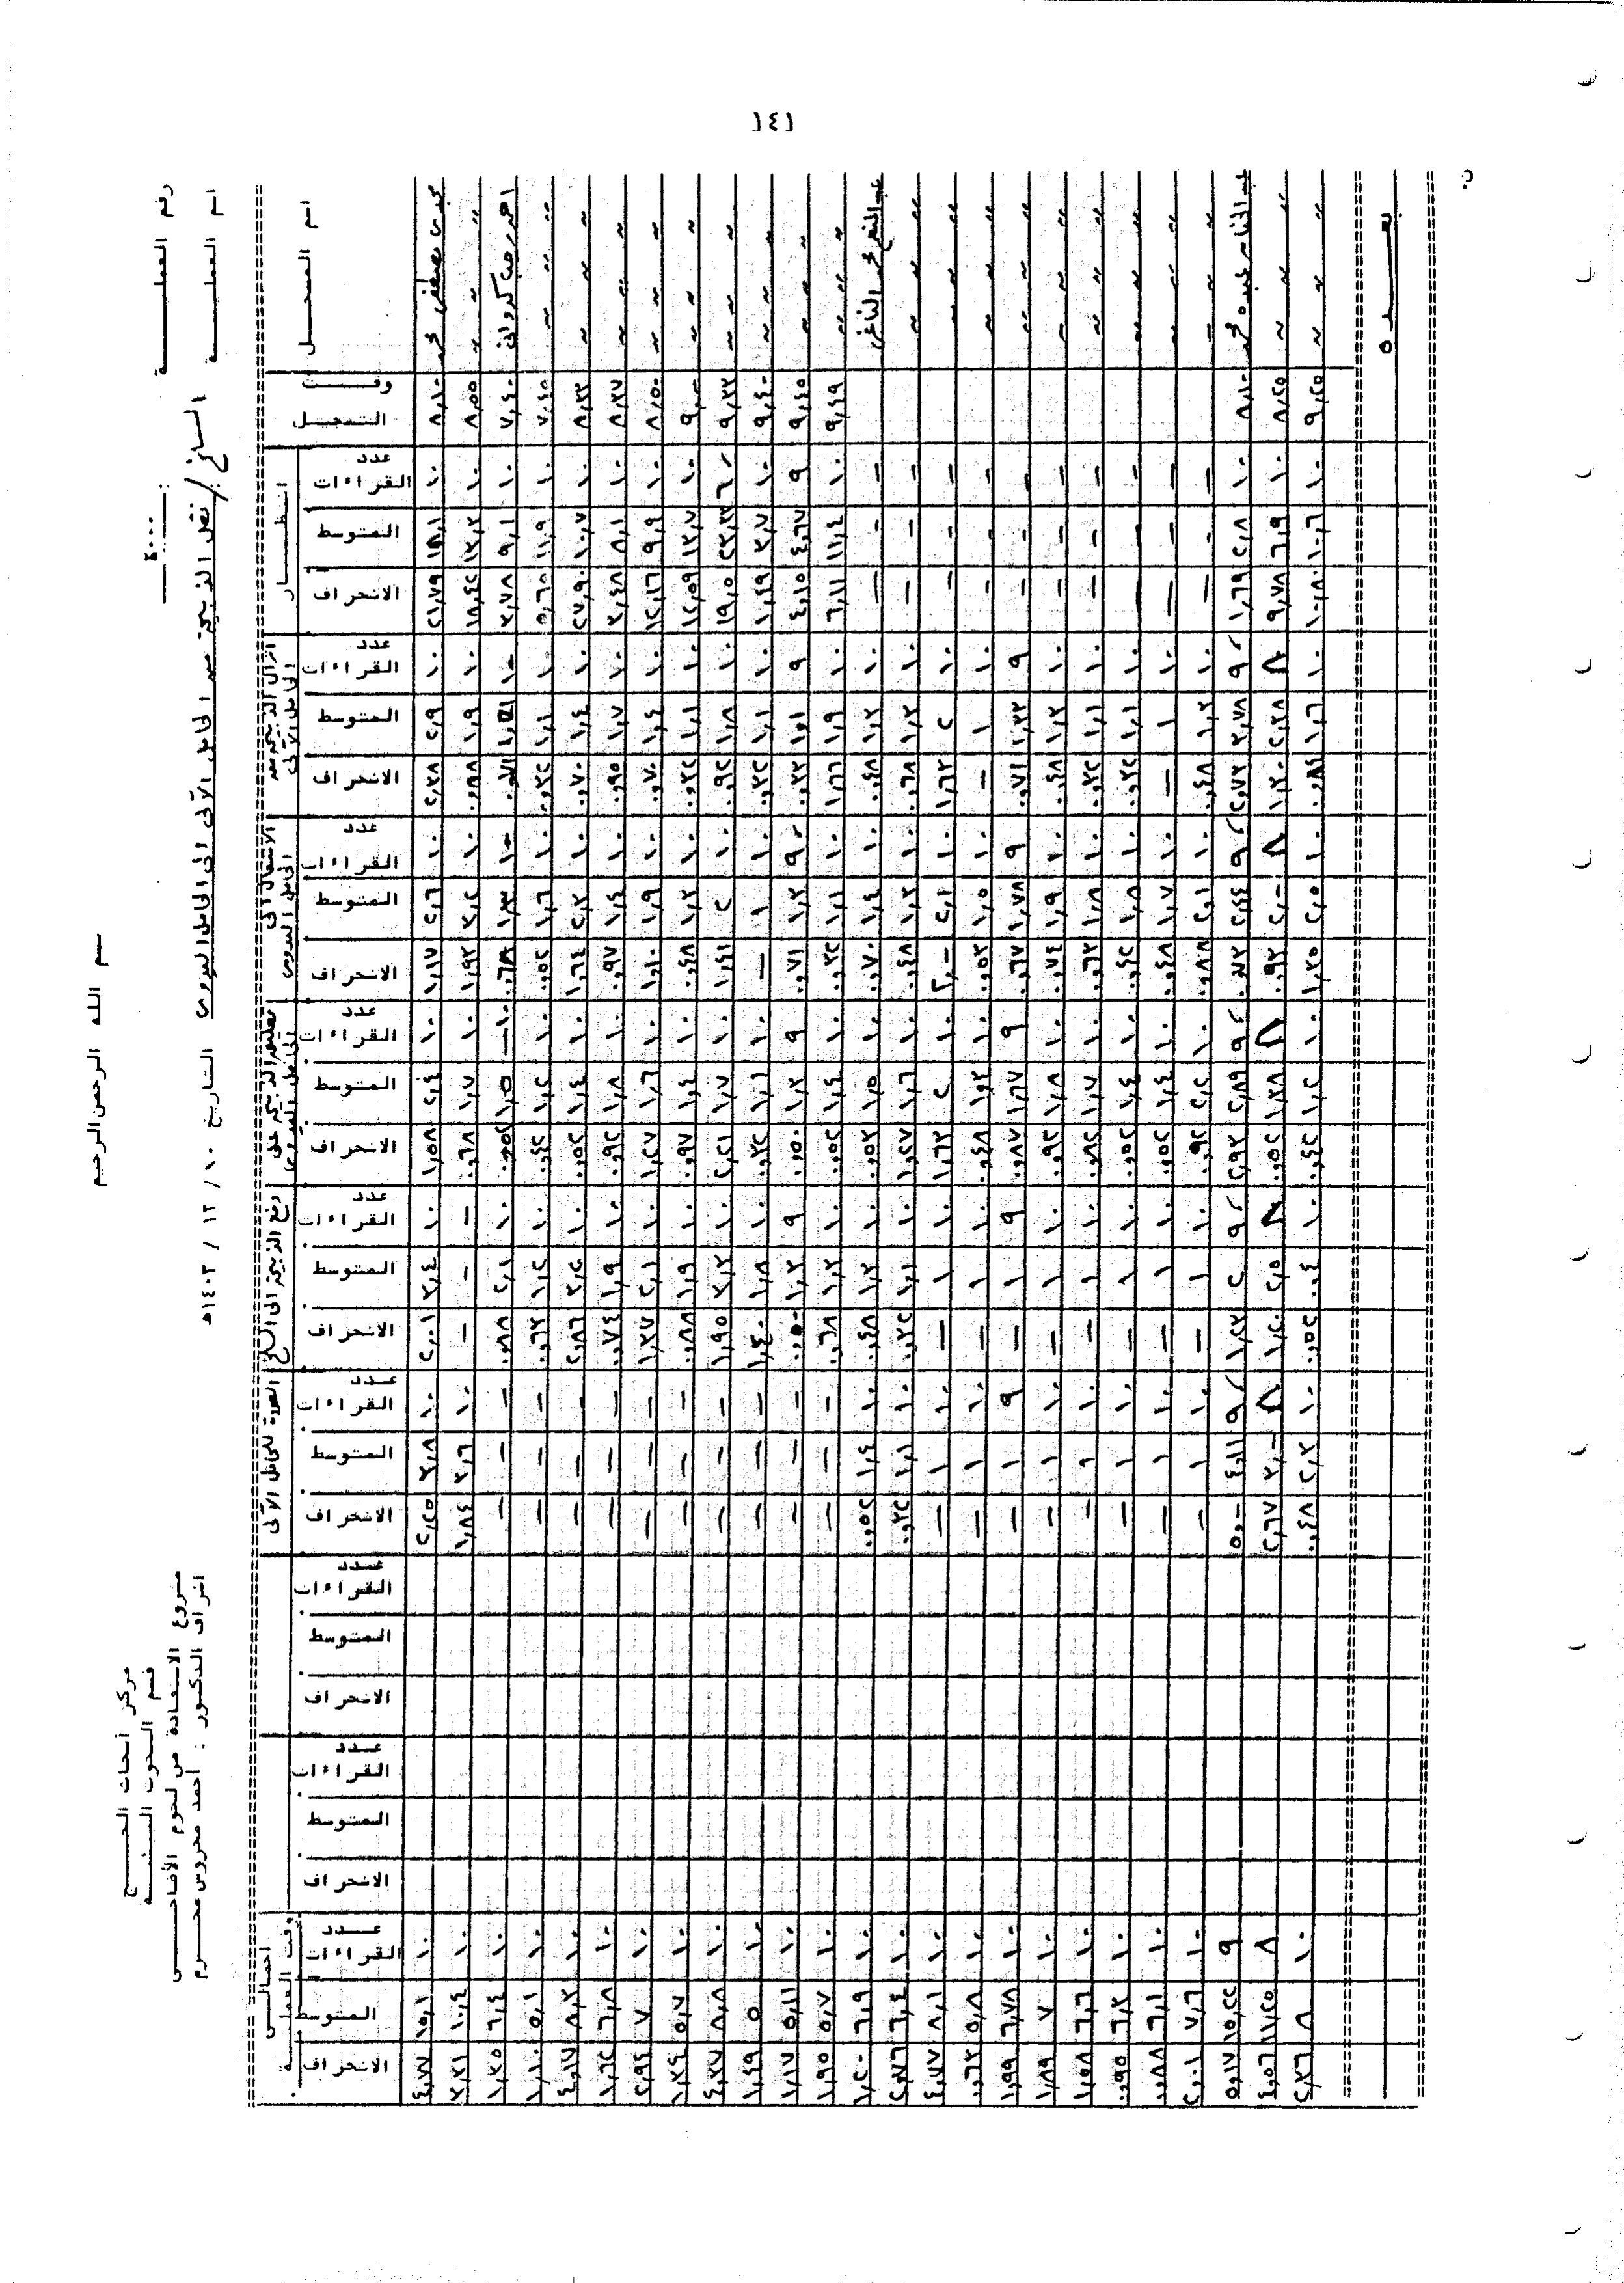 ١٤١
بسم الله الرحمن الرحيم
مركز أبحاث الحج
قسم البحوث البيئية
مشروع الاستفادة من لحوم الأضاحى
اشراف الدكتور : أحمد محروس محرم
رقم العملية : ٥٠٠٠
اسم العملية : السلخ / نقل الذبيحة من الحامل الآلى الى الحامل اليدوى التاريخ ١٠ / ١٢ / ١٤٠٣هـ
اسم المسجل وقت التسجيل انتظار انزال الذبيحة من الحامل الآلى الانتقال الى الحامل اليدوى تعليق الذبيحة على الحامل اليدوى دفع الذبيحة الى السلخ العودة للحامل الآلى اجمالى وقت العملية
عدد القراءات المتوسط الانحراف عدد القراءات المتوسط الانحراف عدد القراءات المتوسط الانحراف عدد القراءات المتوسط الانحراف عدد القراءات المتوسط الانحراف عدد القراءات المتوسط الانحراف عدد القراءات المتوسط الانحراف عدد القراءات المتوسط الانحراف عدد القراءات المتوسط الانحراف
مجدى مصطفى محمد ٨,١٠ ١٠ ١٨,١ ٢١,٧٩ ١٠ ٢,٩ ٢,٣٨ ١٠ ٢,٦ ١,١٧ ١٠ ٢,٤ ١,٥٨ ١٠ ٣,٤ ٢,٠١ ١٠ ٣,٨ ٢,٢٥ ١٠ ١٥,١ ٤,٧٧
〃 〃 〃 ٨,٥٥ ١٠ ١٣,٢ ١٨,٤٢ ١٠ ١,٩ ٠,٨٨ ١٠ ٣,٢ ١,٩٣ ١٠ ١,٧ ٠,٦٨ – – – ١٠ ٣,٦ ١,٨٤ ١٠ ١٠,٤ ٣,٢١
احمد رجب كروانى ٧,٤٠ ١٠ ٩,١ ٣,٧٨ ١٠ ١٠ ١,٣ ٠,٦٨ ١٠ ١,٥ ٠,٥٢ ١٠ ٢,١ ٠,٨٨ – – – ١٠ ٦,٤ ١,٣٥
〃 〃 〃 ٧,٤٥ ١٠ ١١,٩ ٥,٦٨ ١٠ ١,١ ٠,٣٢ ١٠ ١,٦ ٠,٥٢ ١٠ ١,٢ ٠,٤٢ ١٠ ١,٢ ٠,٦٣ – – – ١٠ ٥,١ ١,١٠
〃 〃 〃 ٨,٣٣ ١٠ ١٠,٧ ٢٧,٩٠ ١٠ ١,٤ ٠,٧٠ ١٠ ٢,٣ ١,٦٤ ١٠ ١,٤ ٠,٥٢ ١٠ ٣,٢ ٢,٨٦ – – – ١٠ ٨,٣ ٤,١٧
〃 〃 〃 ٨,٣٧ ١٠ ٨,١ ٣,٤٨ ١٠ ١,٧ ٠,٩٥ ١٠ ١,٤ ٠,٩٧ ١٠ ١,٨ ٠,٩٢ ١٠ ١,٩ ٠,٧٤ – – – ١٠ ٦,٨ ١,٦٢
〃 〃 〃 ٨,٥٠ ١٠ ٩,٩ ١٢,١٦ ١٠ ١,٤ ٠,٧٠ ١٠ ١,٩ ١,١٠ ١٠ ١,٦ ١,٢٧ ١٠ ٢,١ ١,٣٧ – – – ١٠ ٧ ٢,٩٤
〃 〃 〃 ٩,– ١٠ ١٣,٧ ١٢,٥٩ ١٠ ١,١ ٠,٣٢ ١٠ ١,٣ ٠,٤٨ ١٠ ١,٤ ٠,٩٧ ١٠ ١,٩ ٠,٨٨ – – – ١٠ ٥,٧ ١,٣٤
〃 〃 〃 ٩,٣٣ ٦ ٢٣,٣٣ ١٩,٥ ١٠ ١,٨ ٠,٩٢ ١٠ ٢ ١,٤١ ١٠ ١,٧ ٢,٢١ ١٠ ٣,٢ ١,٩٥ – – – ١٠ ٨,٨ ٤,٣٧
〃 〃 〃 ٩,٤٠ ١٠ ٣,٧ ١,٤٩ ١٠ ١,١ ٠,٣٢ ١٠ ١ – ١٠ ١,١ ٠,٣٢ ١٠ ١,٨ ١,٤٠ – – – ١٠ ٥ ١,٤٩
〃 〃 〃 ٩,٤٥ ٩ ٤,٦٧ ٤,١٥ ٩ ١,١ ٠,٣٣ ٩ ١,٣ ٠,٧١ ٩ ١,٣ ٠,٥٠ ٩ ١,٣ ٠,٥٠ – – – ١٠ ٥,١١ ١,١٧
〃 〃 〃 ٩,٤٩ ١٠ ١١,٤ ٦,١١ ١٠ ١,٩ ١,٦٦ ١٠ ١,١ ٠,٣٢ ١٠ ١,٤ ٠,٥٢ ١٠ ١,٣ ٠,٦٨ – – – ١٠ ٥,٧ ١,٩٥
عبد المنعم محمد الناغى – – – ١٠ ١,٣ ٠,٤٨ ١٠ ١,٤ ٠,٧٠ ١٠ ١,٥ ٠,٥٣ ١٠ ١,٣ ٠,٤٨ ١٠ ١,٤ ٠,٥٢ ١٠ ٦,٩ ١,٢٠
〃 〃 〃 – – – ١٠ ١,٣ ٠,٦٨ ١٠ ١,٣ ٠,٤٨ ١٠ ١,٦ ١,٢٧ ١٠ ١,١ ٠,٣٢ ١٠ ١,١ ٠,٣٢ ١٠ ٦,٤ ٢,٧٦
〃 〃 〃 – – – ١٠ ٢ ١,٦٣ ١٠ ٢,١ ٢,– ١٠ ٢ ١,٦٣ ١٠ ١ – ١٠ ١ – ١٠ ٨,١ ٤,٧٧
〃 〃 〃 – – – ١٠ ١ – ١٠ ١,٥ ٠,٥٣ ١٠ ١,٣ ٠,٤٨ ١٠ ١ – ١٠ ١ – ١٠ ٥,٨ ٠,٦٣
〃 〃 〃 – – – ٩ ١,٣٣ ٠,٧١ ٩ ١,٧٨ ٠,٦٧ ٩ ١,٦٧ ٠,٨٧ ٩ ١ – ٩ ١ – ١٠ ٦,٧٨ ١,٩٩
〃 〃 〃 – – – ١٠ ١,٣ ٠,٤٨ ١٠ ١,٩ ٠,٧٤ ١٠ ١,٨ ٠,٩٢ ١٠ ١ – ١٠ ١ – ١٠ ٧ ١,٨٩
〃 〃 〃 – – – ١٠ ١,١ ٠,٣٢ ١٠ ١,٨ ٠,٦٣ ١٠ ١,٧ ٠,٨٢ ١٠ ١ – ١٠ ١ – ١٠ ٦,٦ ١,٥٨
〃 〃 〃 – – – ١٠ ١,١ ٠,٣٢ ١٠ ١,٨ ٠,٤٢ ١٠ ١,٤ ٠,٥٢ ١٠ ١ – ١٠ ١ – ١٠ ٦,٣ ٠,٩٥
〃 〃 〃 – – – ١٠ ١ – ١٠ ١,٧ ٠,٤٨ ١٠ ١,٤ ٠,٥٢ ١٠ ١ – ١٠ ١ – ١٠ ٦,١ ٠,٨٨
〃 〃 〃 – – – ١٠ ١,٣ ٠,٤٨ ١٠ ٢,١ ٠,٨٨ ١٠ ٢,٢ ٠,٩٢ ١٠ ١ – ١٠ ١ – ١٠ ٧,٦ ٢,٠١
عبده محمد ٨,١٠ ١٠ ٢,٨ ١,٦٩ ٩ ٢,٧٨ ٢,٧٣ ٩ ٢,٤٤ ٠,٧٣ ٩ ٢,٨٩ ٢,٩٣ ٩ ٢ ١,٢٣ ٩ ٤,١١ ٥,– ٩ ١٥,٢٢ ٥,١٧
〃 〃 〃 ٨,٢٥ ١٠ ٦,٩ ٩,٧٨ ٨ ٢,٣٨ ١,٣٠ ٨ ٢,– ٠,٩٢ ٨ ١,٣٨ ٠,٥٢ ٨ ٢,٥ ١,٢٠ ٨ ٣,– ٢,٦٧ ٨ ١١,٢٥ ٤,٥٦
〃 〃 〃 ٩,٢٥ ١٠ ١٠,٦ ١٠,٨٠ ١٠ ١,٦ ٠,٨٤ ١٠ ٢,٥ ١,٣٥ ١٠ ١,٢ ٠,٤٢ ١٠ ٠,٤ ٠,٥٢ ١٠ ٢,٣ ٠,٤٨ ١٠ ٨ ٢,٢٦